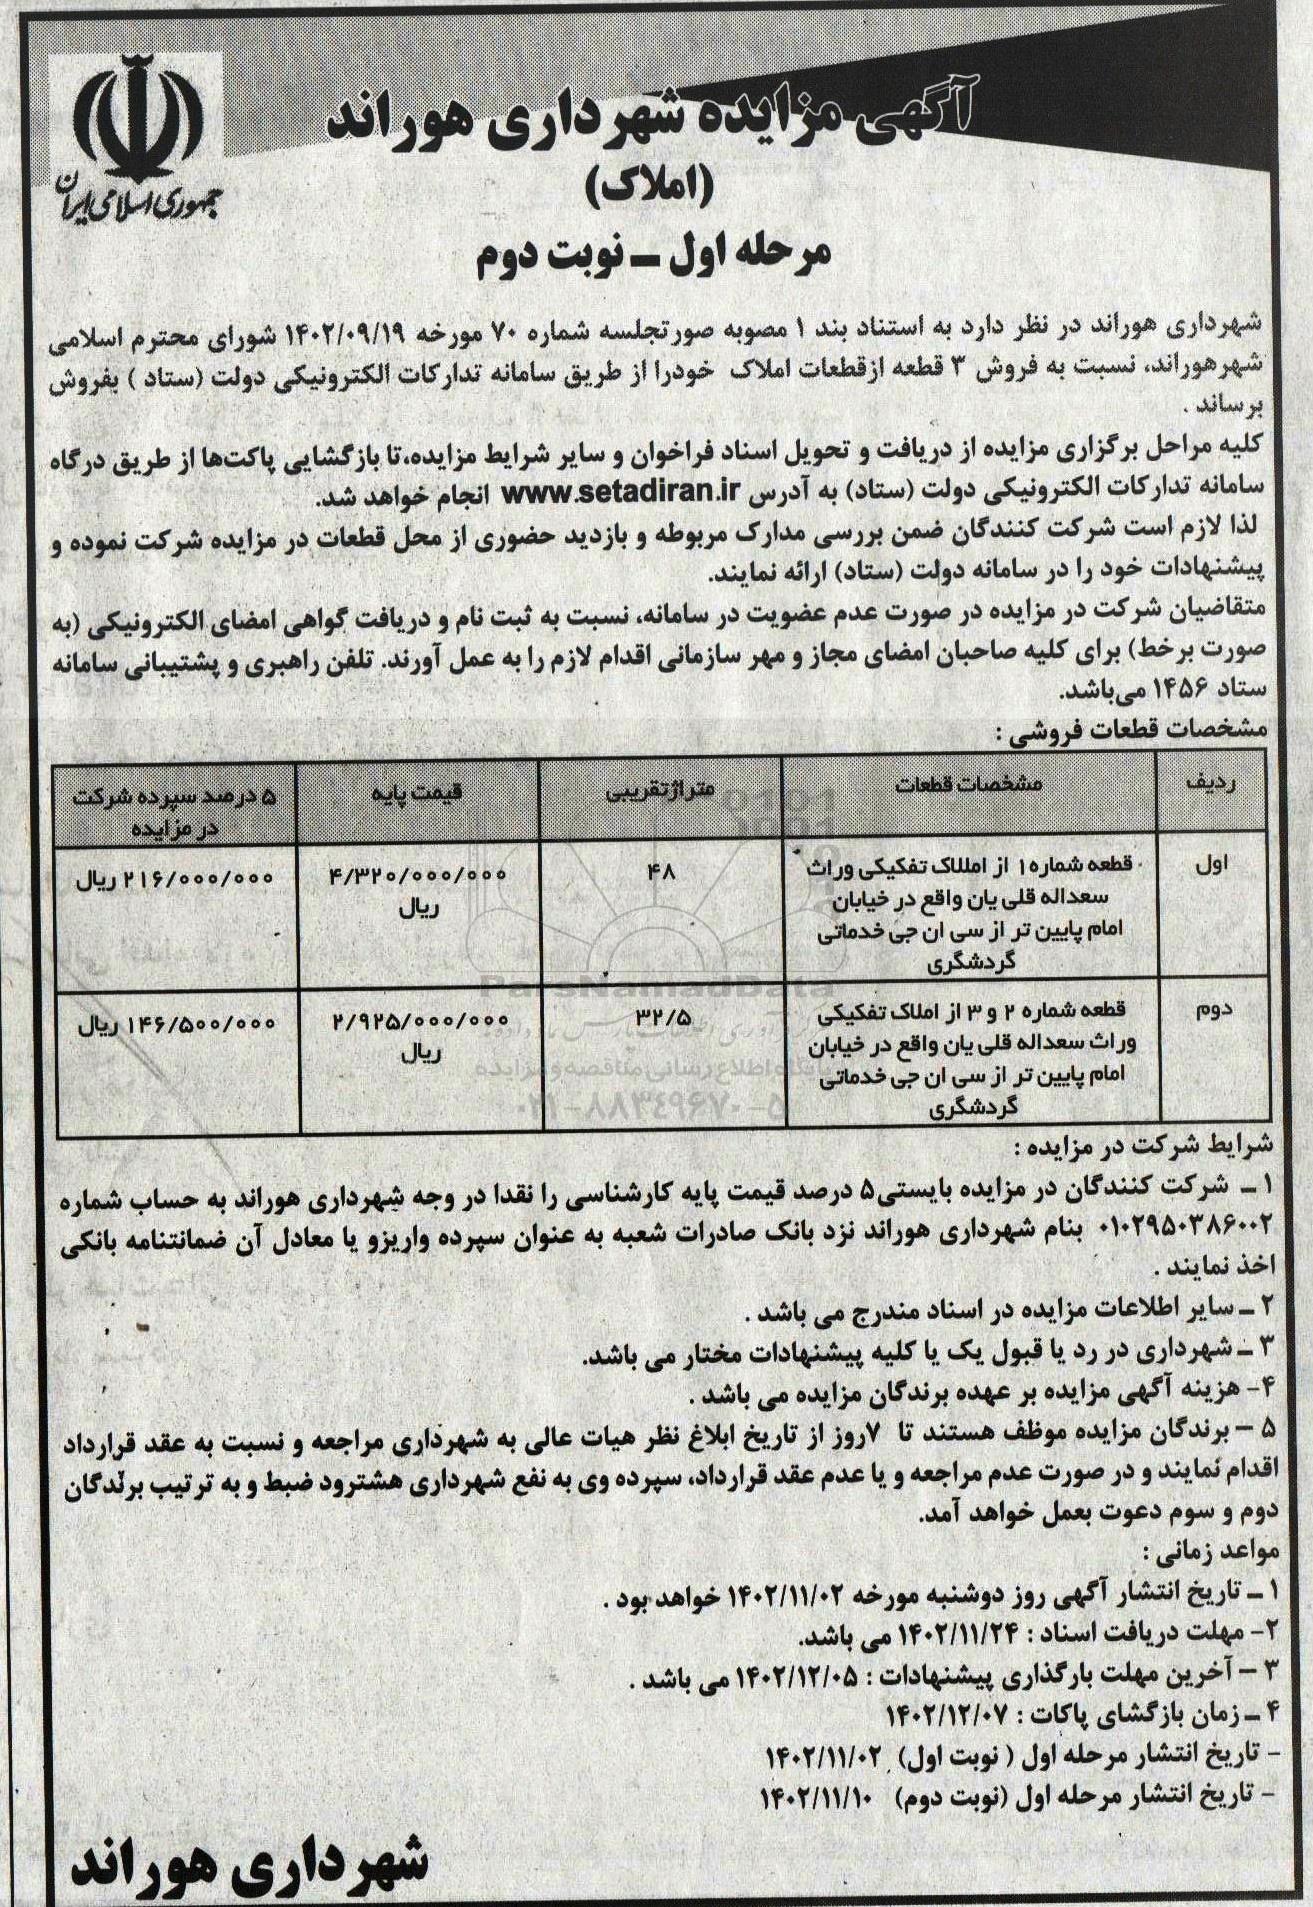 آگهی مزایده شهرداری هوراند
(املاک)
مرحله اول ـ نوبت دوم
جمهوری اسلامی ایران
شهرداری هوراند در نظر دارد به استناد بند ۱ مصوبه صورتجلسه شماره ۷۰ مورخه ۱۴۰۲/۰۹/۱۹ شورای محترم اسلامی
شهرهوراند، نسبت به فروش ۳ قطعه ازقطعات املاک خودرا از طریق سامانه تدارکات الکترونیکی دولت (ستاد ) بفروش
برساند .
کلیه مراحل برگزاری مزایده از دریافت و تحویل اسناد فراخوان و سایر شرایط مزایده،تا بازگشایی پاکت‌ها از طریق درگاه
سامانه تدارکات الکترونیکی دولت (ستاد) به آدرس www.setadiran.ir انجام خواهد شد.
لذا لازم است شرکت کنندگان ضمن بررسی مدارک مربوطه و بازدید حضوری از محل قطعات در مزایده شرکت نموده و
پیشنهادات خود را در سامانه دولت (ستاد) ارائه نمایند.
متقاضیان شرکت در مزایده در صورت عدم عضویت در سامانه، نسبت به ثبت نام و دریافت گواهی امضای الکترونیکی (به
صورت برخط) برای کلیه صاحبان امضای مجاز و مهر سازمانی اقدام لازم را به عمل آورند. تلفن راهبری و پشتیبانی سامانه
ستاد ۱۴۵۶ می‌باشد.
مشخصات قطعات فروشی :
ردیف مشخصات قطعات متراژتقریبی قیمت پایه ۵ درصد سپرده شرکت
در مزایده
اول قطعه شماره۱ از امللاک تفکیکی وراث ۴۸ ۴/۳۲۰/۰۰۰/۰۰۰ ۲۱۶/۰۰۰/۰۰۰ ریال
سعداله قلی یان واقع در خیابان ریال
امام پایین تر از سی ان جی خدماتی
گردشگری
دوم قطعه شماره ۲ و ۳ از املاک تفکیکی ۳۲/۵ ۲/۹۲۵/۰۰۰/۰۰۰ ۱۴۶/۵۰۰/۰۰۰ ریال
وراث سعداله قلی یان واقع در خیابان ریال
امام پایین تر از سی ان جی خدماتی
گردشگری
ParsNamadData
پایگاه اطلاع رسانی مناقصه و مزایده
۰۲۱-۸۸۳۴۹۶۷۰-۵
شرایط شرکت در مزایده :
۱ ـ شرکت کنندگان در مزایده بایستی۵ درصد قیمت پایه کارشناسی را نقدا در وجه شهرداری هوراند به حساب شماره
۰۱۰۲۹۵۰۳۸۶۰۰۲ بنام شهرداری هوراند نزد بانک صادرات شعبه به عنوان سپرده واریزو یا معادل آن ضمانتنامه بانکی
اخذ نمایند .
۲ ـ سایر اطلاعات مزایده در اسناد مندرج می باشد .
۳ ـ شهرداری در رد یا قبول یک یا کلیه پیشنهادات مختار می باشد.
۴- هزینه آگهی مزایده بر عهده برندگان مزایده می باشد .
۵ – برندگان مزایده موظف هستند تا ۷روز از تاریخ ابلاغ نظر هیات عالی به شهرداری مراجعه و نسبت به عقد قرارداد
اقدام نمایند و در صورت عدم مراجعه و یا عدم عقد قرارداد، سپرده وی به نفع شهرداری هشترود ضبط و به ترتیب برندگان
دوم و سوم دعوت بعمل خواهد آمد.
مواعد زمانی :
۱ ـ تاریخ انتشار آگهی روز دوشنبه مورخه ۱۴۰۲/۱۱/۰۲ خواهد بود .
۲- مهلت دریافت اسناد : ۱۴۰۲/۱۱/۲۴ می باشد.
۳ – آخرین مهلت بارگذاری پیشنهادات : ۱۴۰۲/۱۲/۰۵ می باشد .
۴ ـ زمان بازگشای پاکات : ۱۴۰۲/۱۲/۰۷
- تاریخ انتشار مرحله اول ( نوبت اول) ۱۴۰۲/۱۱/۰۲
- تاریخ انتشار مرحله اول (نوبت دوم) ۱۴۰۲/۱۱/۱۰
شهرداری هوراند